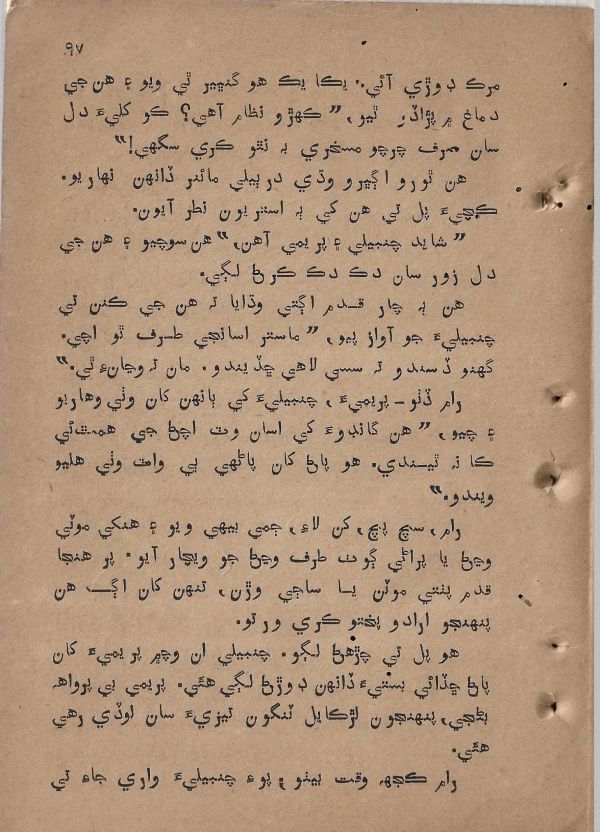 ٩٧
مرڪ ڊوڙي آئي. يڪا يڪ هو گنڀير ٿي ويو ۽ هن جي
دماغ ۾ پڙاڏو ٿيو، ”ڪهڙو نظام آهي؟ ڪو ڪليءَ دل
سان صرف چرچو مسخري بہ نٿو ڪري سگهي!“
هن ٿورو اڳيرو وڌي درٻيلي مائنر ڏانهن نهاريو.
ڪچيءَ پل تي هن کي ٻہ استريون نظر آيون.
”شايد چنبيلي ۽ پريمي آهن،“ هن سوچيو ۽ هن جي
دل زور سان دڪ دڪ ڪرڻ لڳي.
هن ٻہ چار قدم اڳتي وڌايا تہ هن جي ڪنن تي
چنبيليءَ جو آواز پيو، ”ماستر اسانجي طرف ٿو اچي.
گهنو ڏسندو تہ سسي لاهي ڇڏيندو. مان تہ وڃانءِ ٿي.“
رام ڏٺو - پريميءَ، چنبيليءَ کي ٻانهن کان وٺي وهاريو
۽ چيو، ”هن گانڊوءَ کي اسان وٽ اچڻ جي همٿ ئي
ڪا نہ ٿيندي. هو پاڻ کان پاڻهي ٻي واٽ وٺي هليو
ويندو.“
رام، سچ پچ، ڪن لاءِ، ڄمي بيهي ويو ۽ هنکي موٽي
وڃڻ يا پراڻي ڳوٺ طرف وڃڻ جو ويچار آيو. پر هنجا
قدم پٺتي موٽن يا ساڄي وڙن، تنهن کان اڳ هن
پنهنجو ارادو پختو ڪري ورتو.
هو پل تي چڙهڻ لڳو. چنبيلي ان وچ۾ پريميءَ کان
پاڻ ڇڏائي بستيءَ ڏانهن ڊوڙڻ لڳي هئي. پريمي بي پرواھ
بڻجي، پنهنجون لڙڪايل ٽنگون تيزيءَ سان لوڏي رهي
هئي.
رام ڪجهہ وقت بيٺو، پوءِ چنبيليءَ واري جاءِ تي